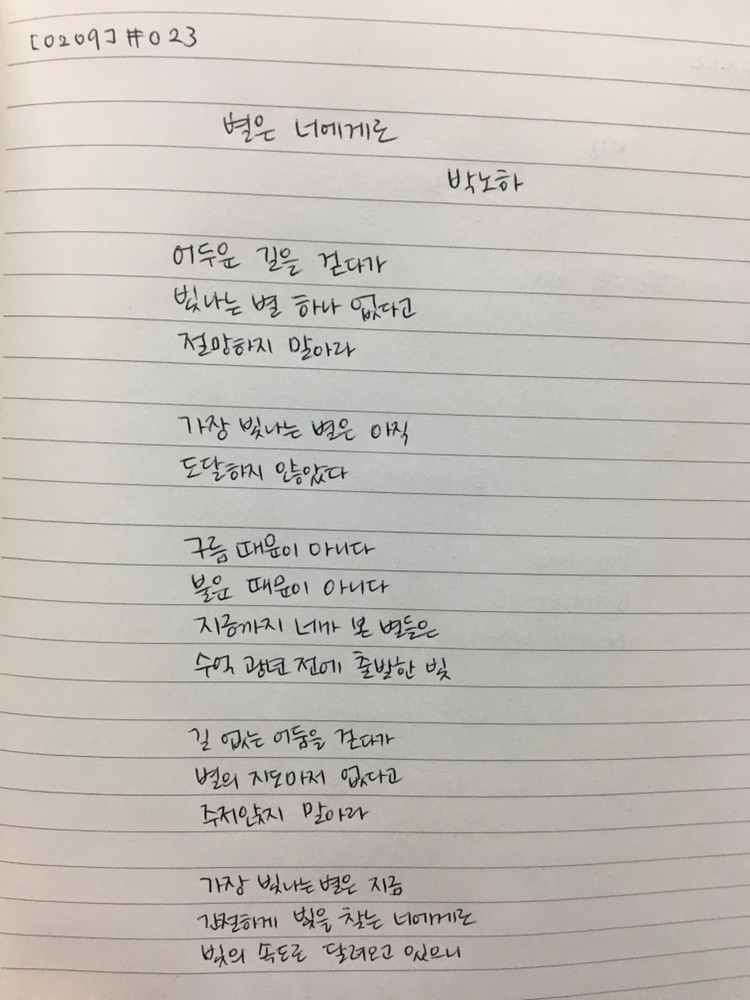 [0209] #023
별은 너에게로
박노하
어두운 길을 걷다가
빛나는 별 하나 없다고
절망하지 말아라
가장 빛나는 별은 아직
도달하지 않았다
구름 때문이 아니다
불운 때문이 아니다
지금까지 네가 본 별들은
수억 광년 전에 출발한 빛
길 없는 어둠을 걷다가
별의 지도마저 없다고
주저앉지 말아라
가장 빛나는 별은 지금
간절하게 빛을 찾는 너에게로
빛의 속도로 달려오고 있으니